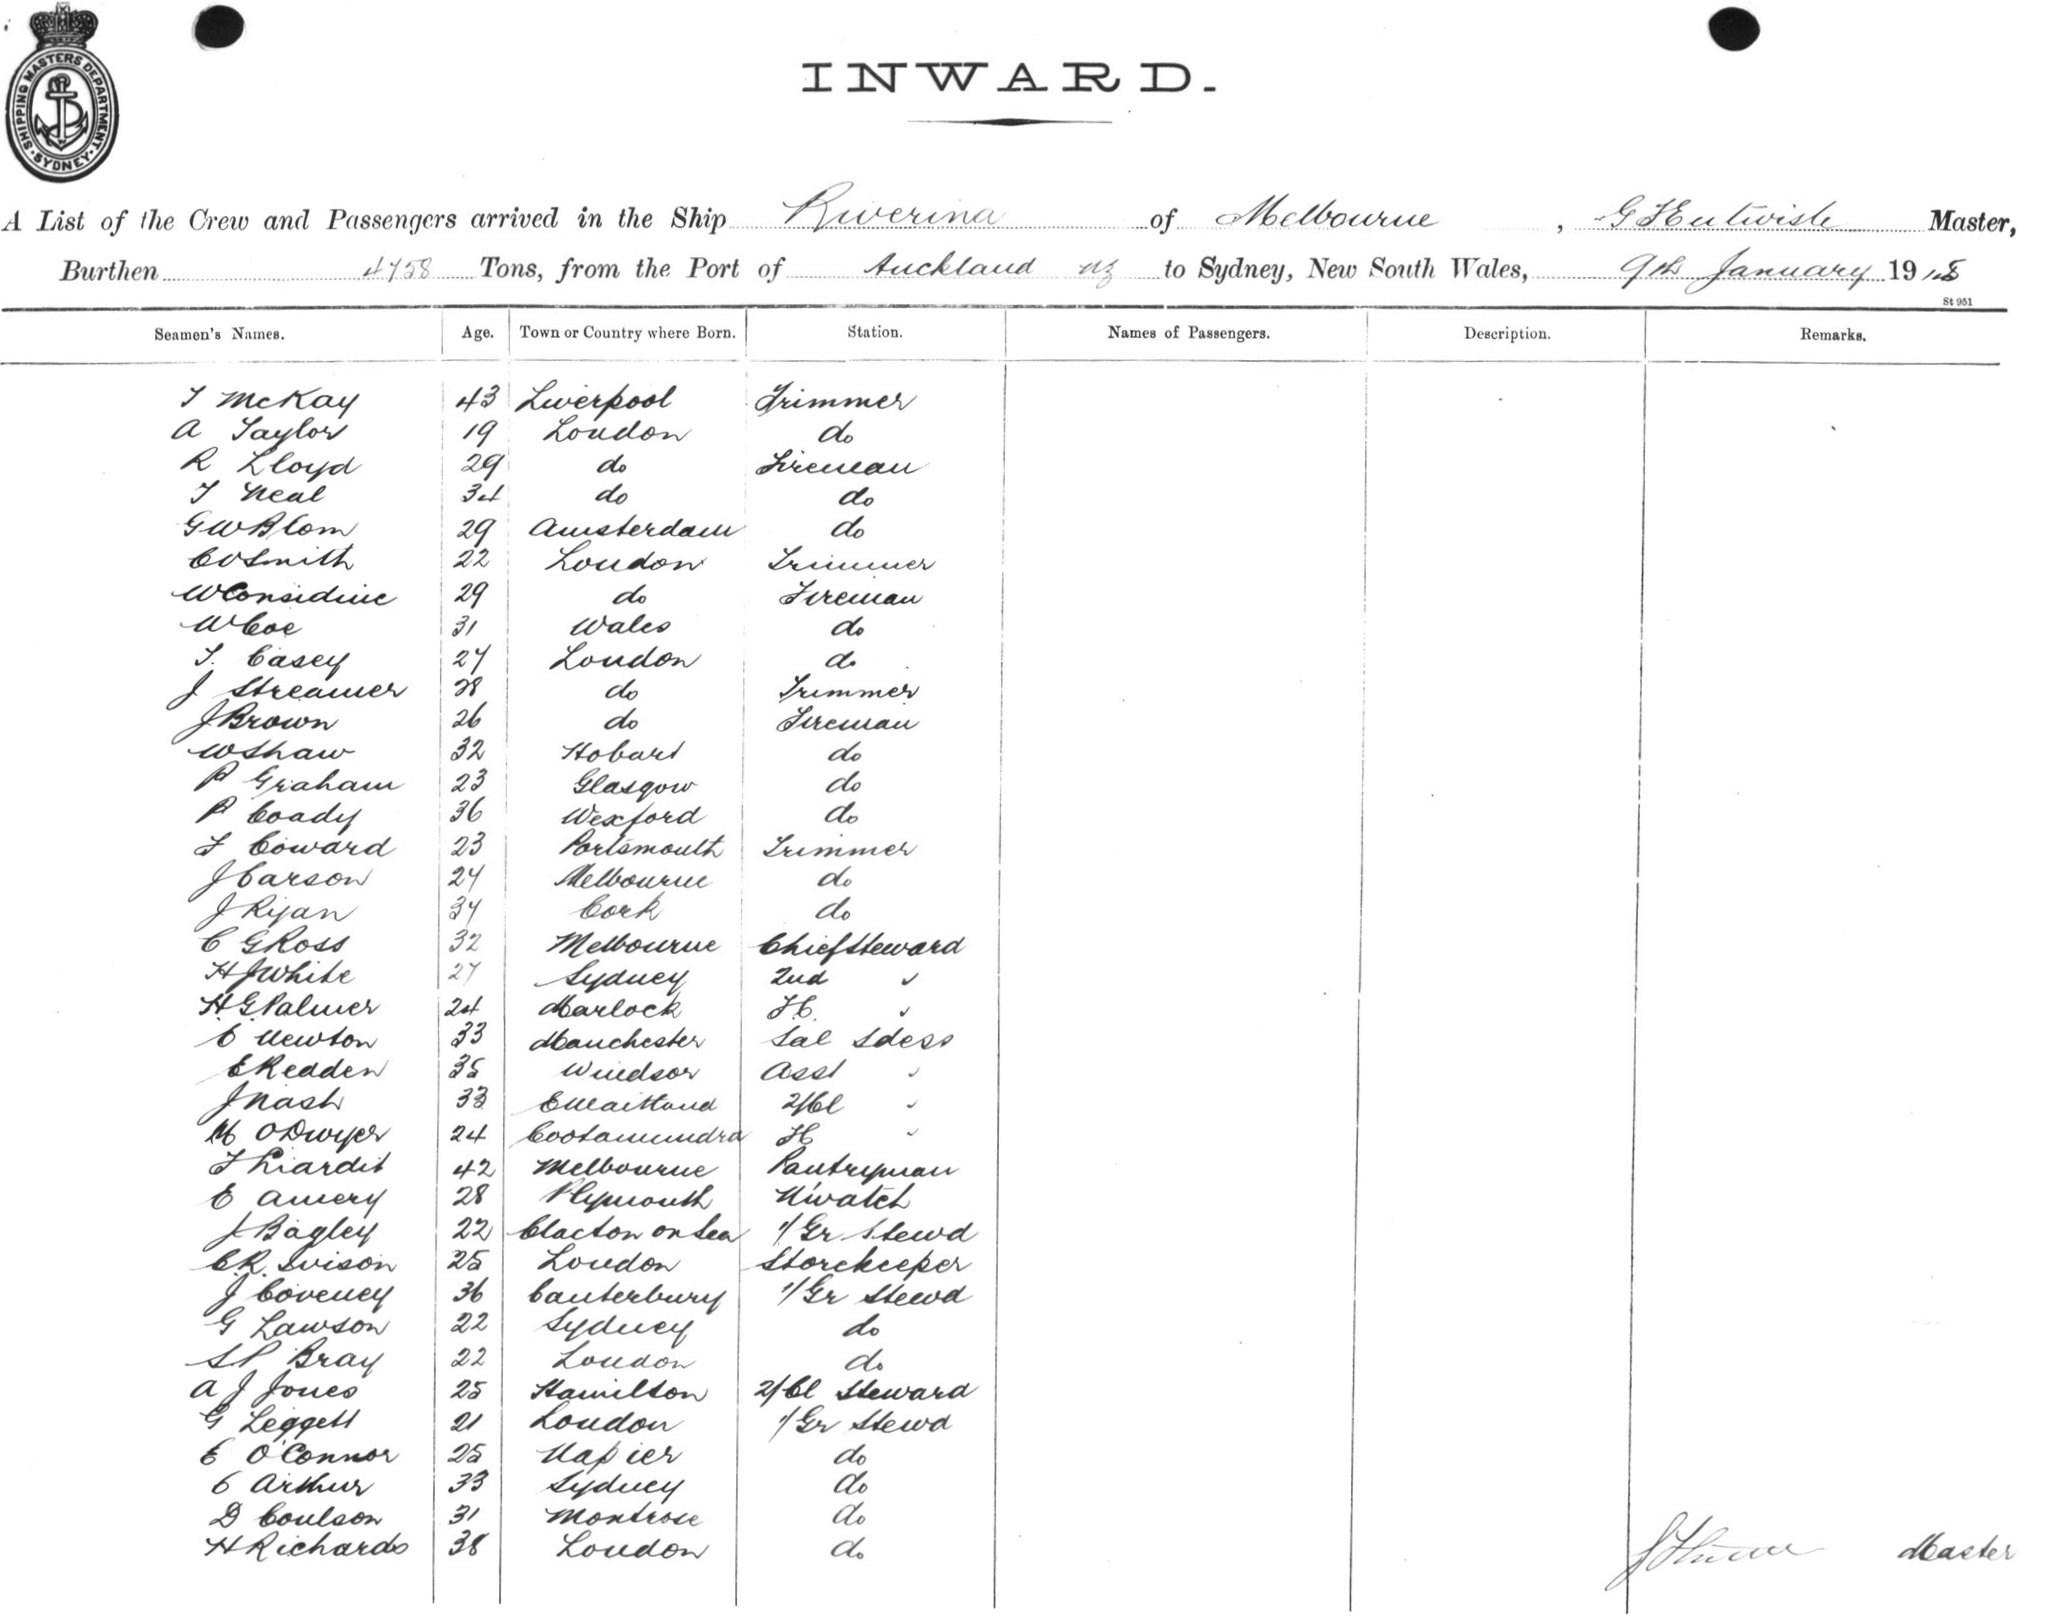 SHIPPING MASTERS DEPARTMENT. SYDNEY
INWARD.
A List of the Crew and Passengers arrived in the Ship Riverina of Melbourne, G F Entwisle Master,
Burthen 4758 Tons, from the Port of Auckland NZ to Sydney, New South Wales, 9th January 1915
St 951
Seamen's Names. Age. Town or Country where Born. Station. Names of Passengers. Description. Remarks.
T McKay 43 Liverpool Trimmer
A Taylor 19 London do
R Lloyd 29 do Fireman
T Neal 34 do do
G W Blom 29 Amsterdam do
C V Smith 22 London Trimmer
W Considine 29 do Fireman
W Coe 31 Wales do
T. Casey 27 London do
J Streamer 28 do Trimmer
J Brown 26 do Fireman
W Shaw 32 Hobart do
P Graham 23 Glasgow do
P Coady 36 Wexford do
F Coward 23 Portsmouth Trimmer
J Carson 24 Melbourne do
J Ryan 34 Cork do
C G Ross 32 Melbourne Chief Steward
H J White 27 Sydney 2nd "
H. G. Palmer 24 Marlock "
E Newton 33 Manchester Sal Sdess
E Redden 35 Windsor Asst "
J Nash 33 E Maitland 2/Cl "
M O'Dwyer 24 Cootamundra "
F Liardit 42 Melbourne Pantryman
E Amery 28 Plymouth N'watch
J Bagley 22 Clacton on Sea 1/Gr Stewd
C. R. Ivison 25 London Storekeeper
J Coveney 36 Canterbury 1/Gr Stewd
G Lawson 22 Sydney do
S P Bray 22 London do
A J Jones 25 Hamilton 2/Cl Steward
G Leggett 21 London 1/Gr Stewd
E O'Connor 25 Napier do
C Arthur 33 Sydney do
D Coulson 31 Montrose do
H Richards 38 London do
Master